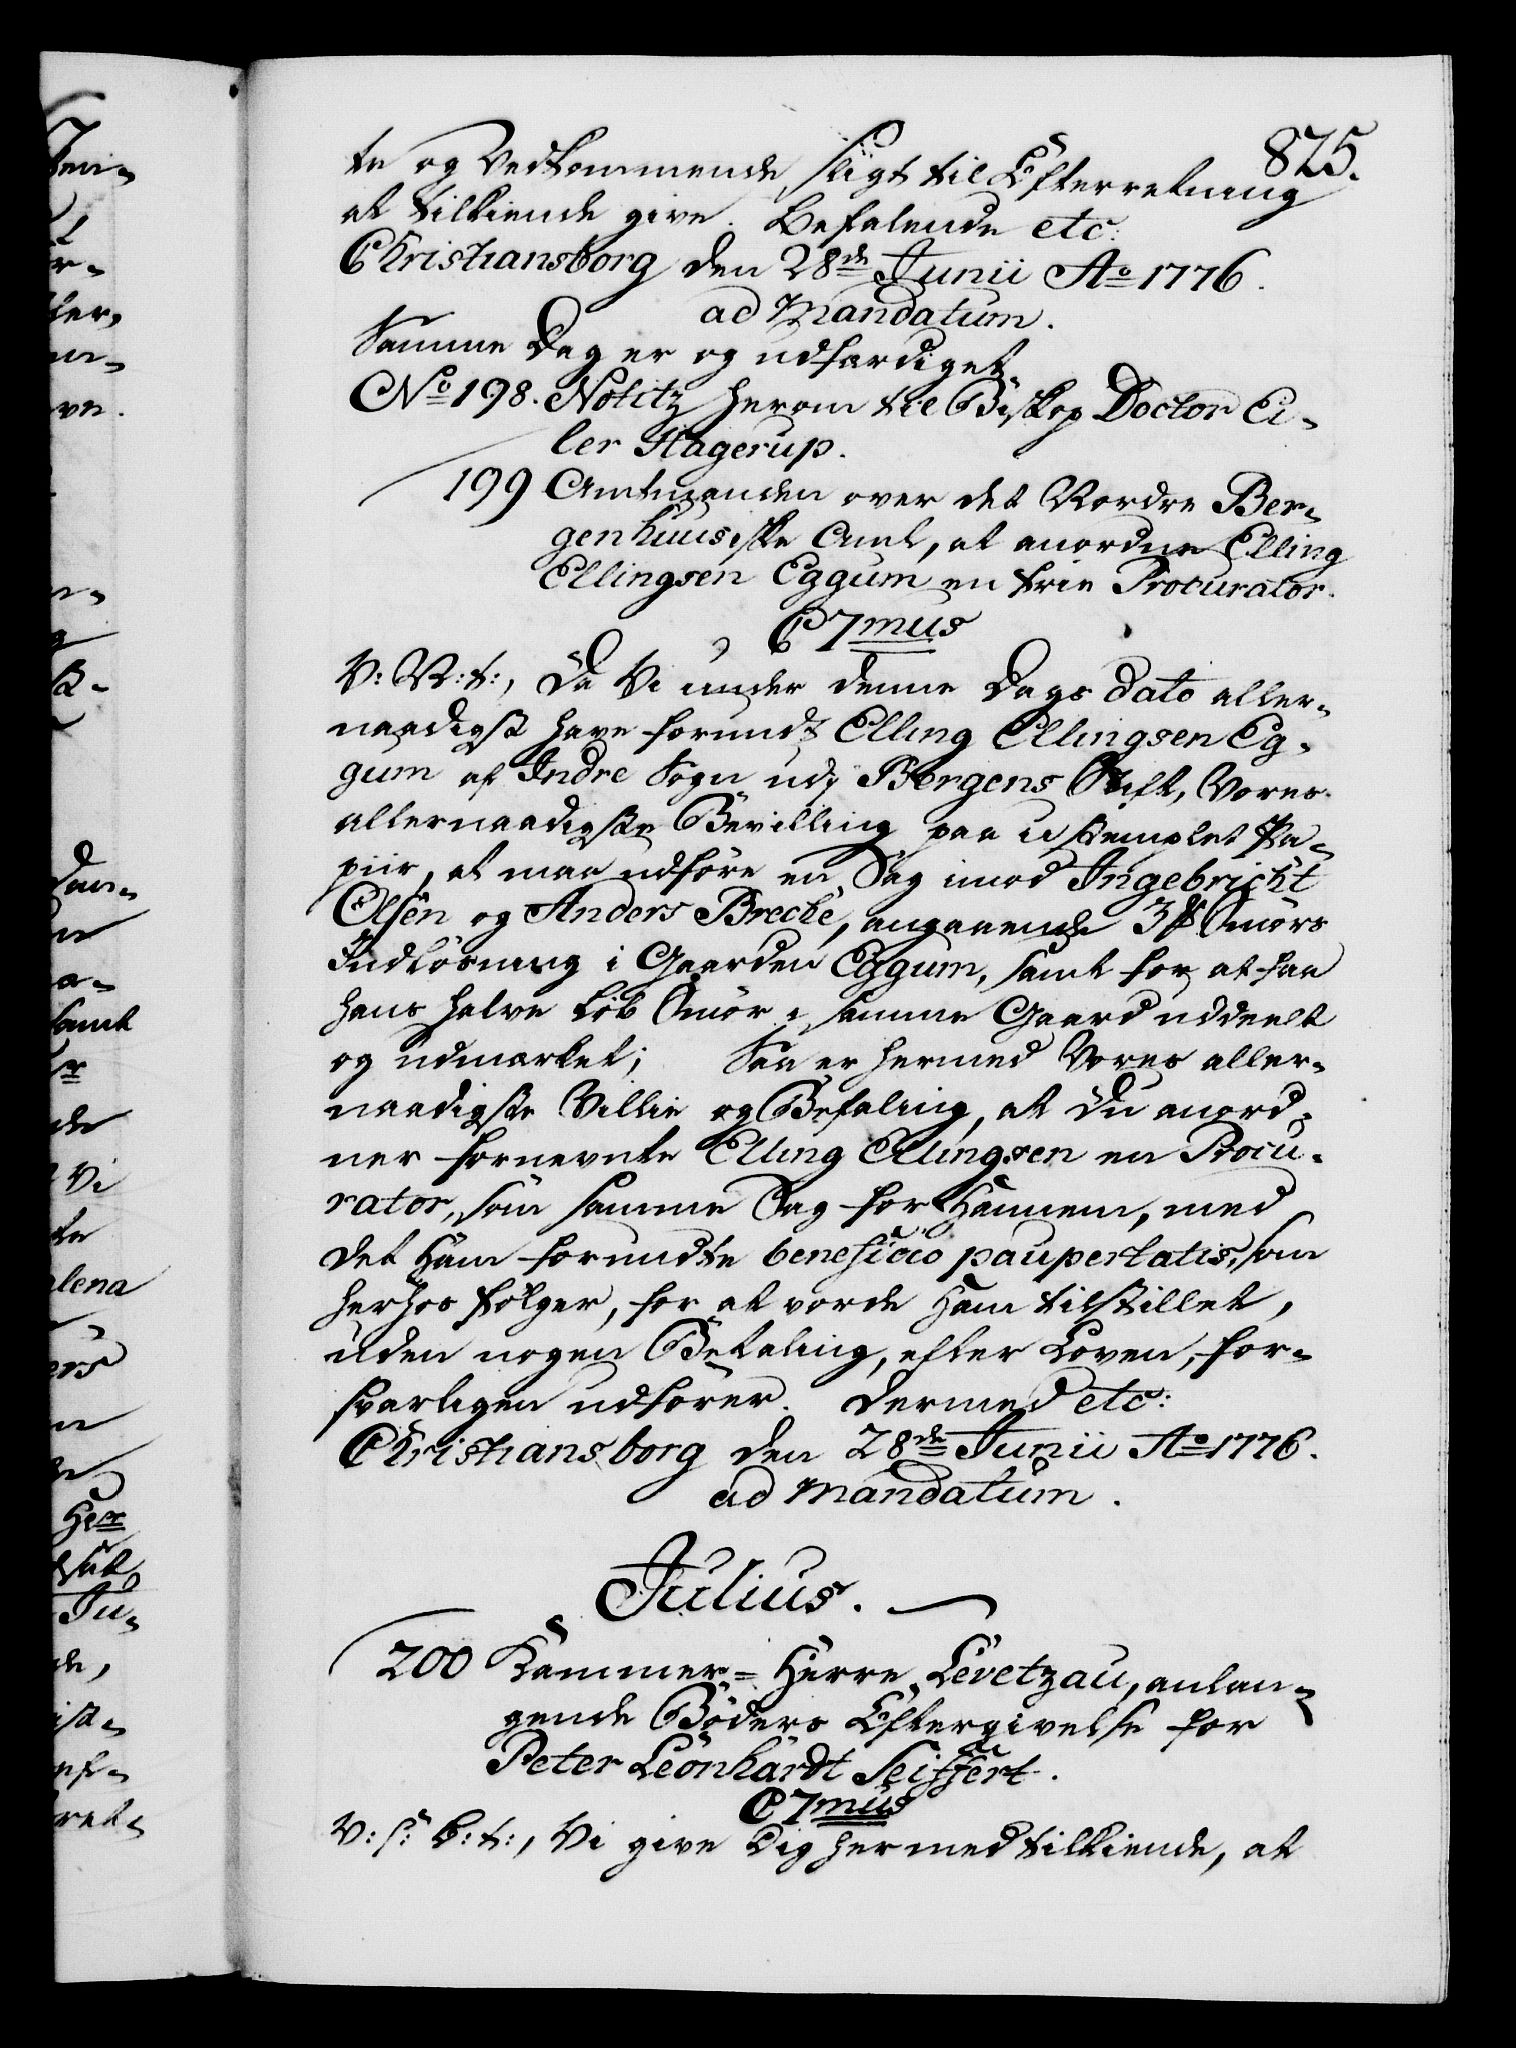 825.
te og Vedkommende, sligt til Efterretning
at tilkiende give. Befalende etc:
Christiansborg den 28de Junii Ao 1776.
ad Mandatum.
Samme Dag er og udfærdiget
No 198. Notitz herom til Biskop Doctor Ei-
ler Hagerup.
199 Amtmanden over det Nordre Ber-
genhuusiske Amt, at anordne Elling
Ellingsen Eggum en frie Procurator.
C7mus
V: N: t:, Da Vi under denne Dags Dato aller-
naadigst have forundt Elling Ellingsen Eg-
gum af Indre Sogn udj Bergens Stift, Vores
allernaadigste Bevilling paa ustemplet Pa-
piir, at maa udföre en Sag imod Ingebricht
Elsen og Anders Brecke, angaaende 3 Smörs
Indlösning i Gaarden Eggum, samt for at faa
hans halve Löb Smör i samme Gaard uddeelt
og udmærket; Saa er hermed Vores aller-
naadigste Villie og Befaling, at Du anord-
ner fornevnte Elling Ellingsen en Procu-
rator, som samme Sag for Hannem, med
det Ham forundte beneficio paupertatis, som
herhos fölger, for at vorde Ham tilstillet,
uden nogen Betaling, efter Loven, for-
svarligen udförer. Dermed etc:
Christiansborg den 28de Junii Ao 1776.
ad Mandatum.
Julius.
200 Kammer-Herre Levetzau, anlan-
gende Böders Eftergivelse for
Peter Leonhardt Seiffert.
C7mus
V: s: b: t:, Vi give Dig hermed tilkiende, at